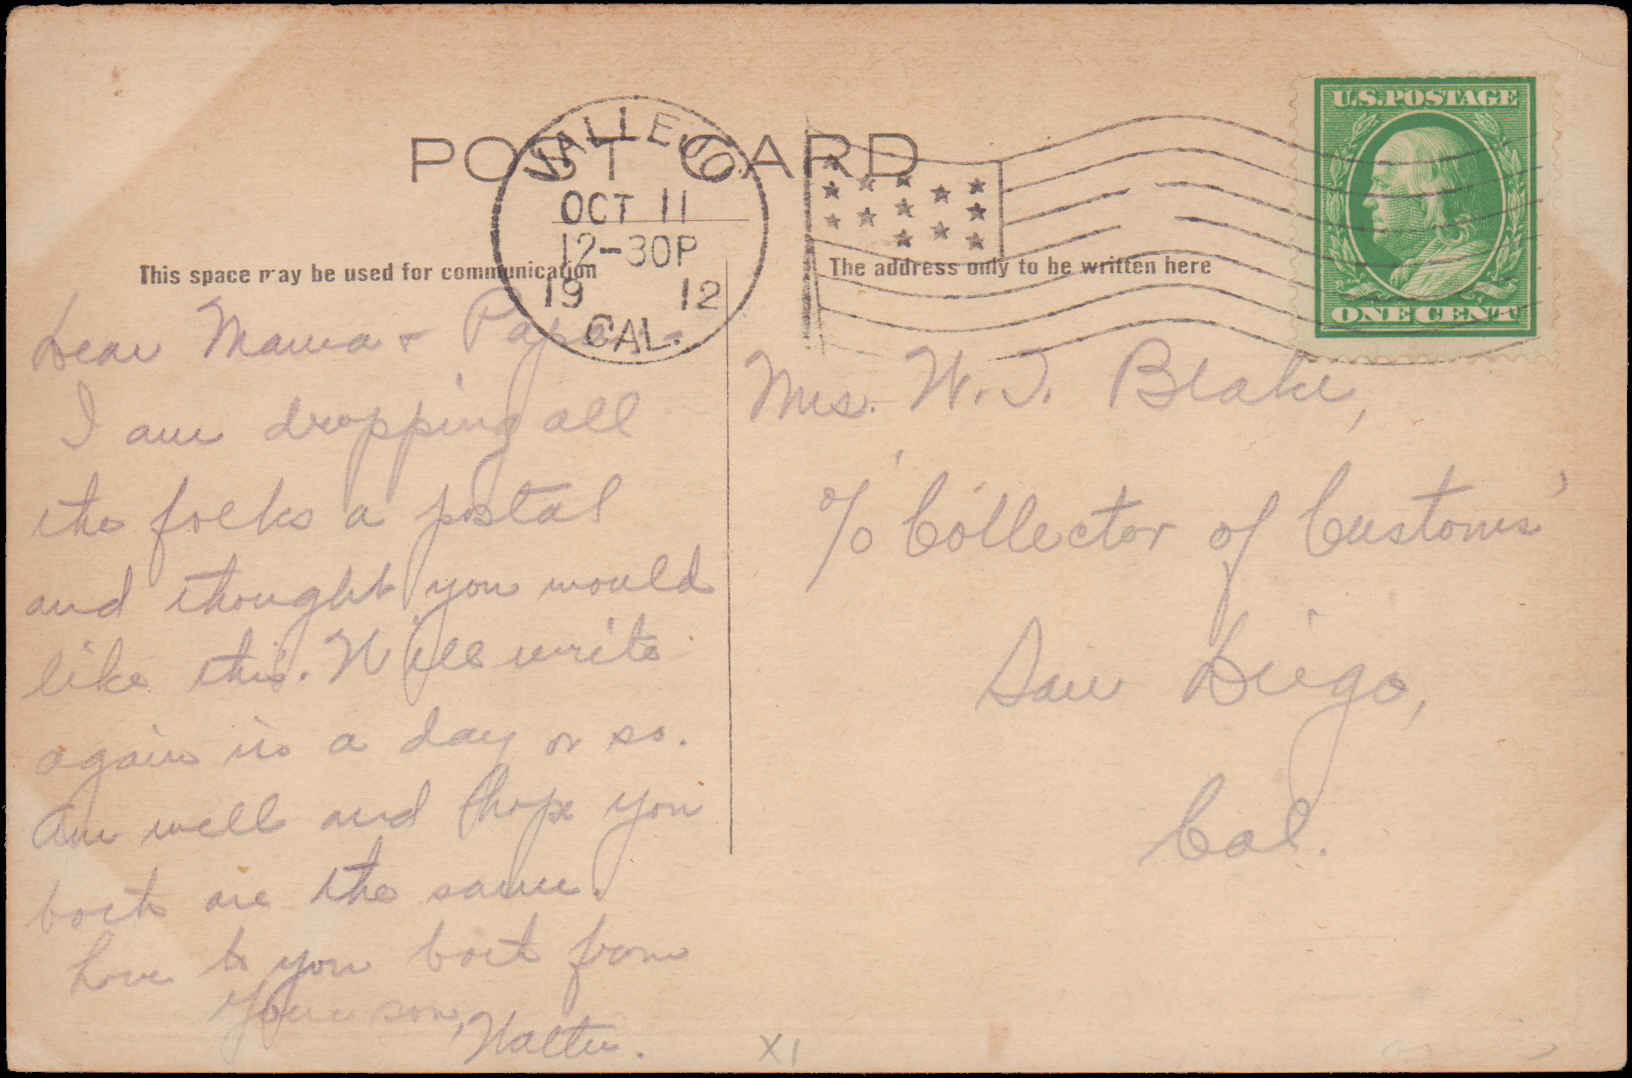 POST CARD
VALLEJO
OCT 11
12-30P
19 12
CAL.
U.S.POSTAGE
ONE CENT
This space may be used for communication
The address only to be written here
Dear Mama + Papa:-
I am dropping all
the folks a postal
and thought you would
like this. Will write
again in a day or so.
Am well and hope you
both are the same.
Love to you both from
Your son,
Walter.
Mrs. W.T. Blake,
c/o Collector of Customs
San Diego,
Cal.
X1